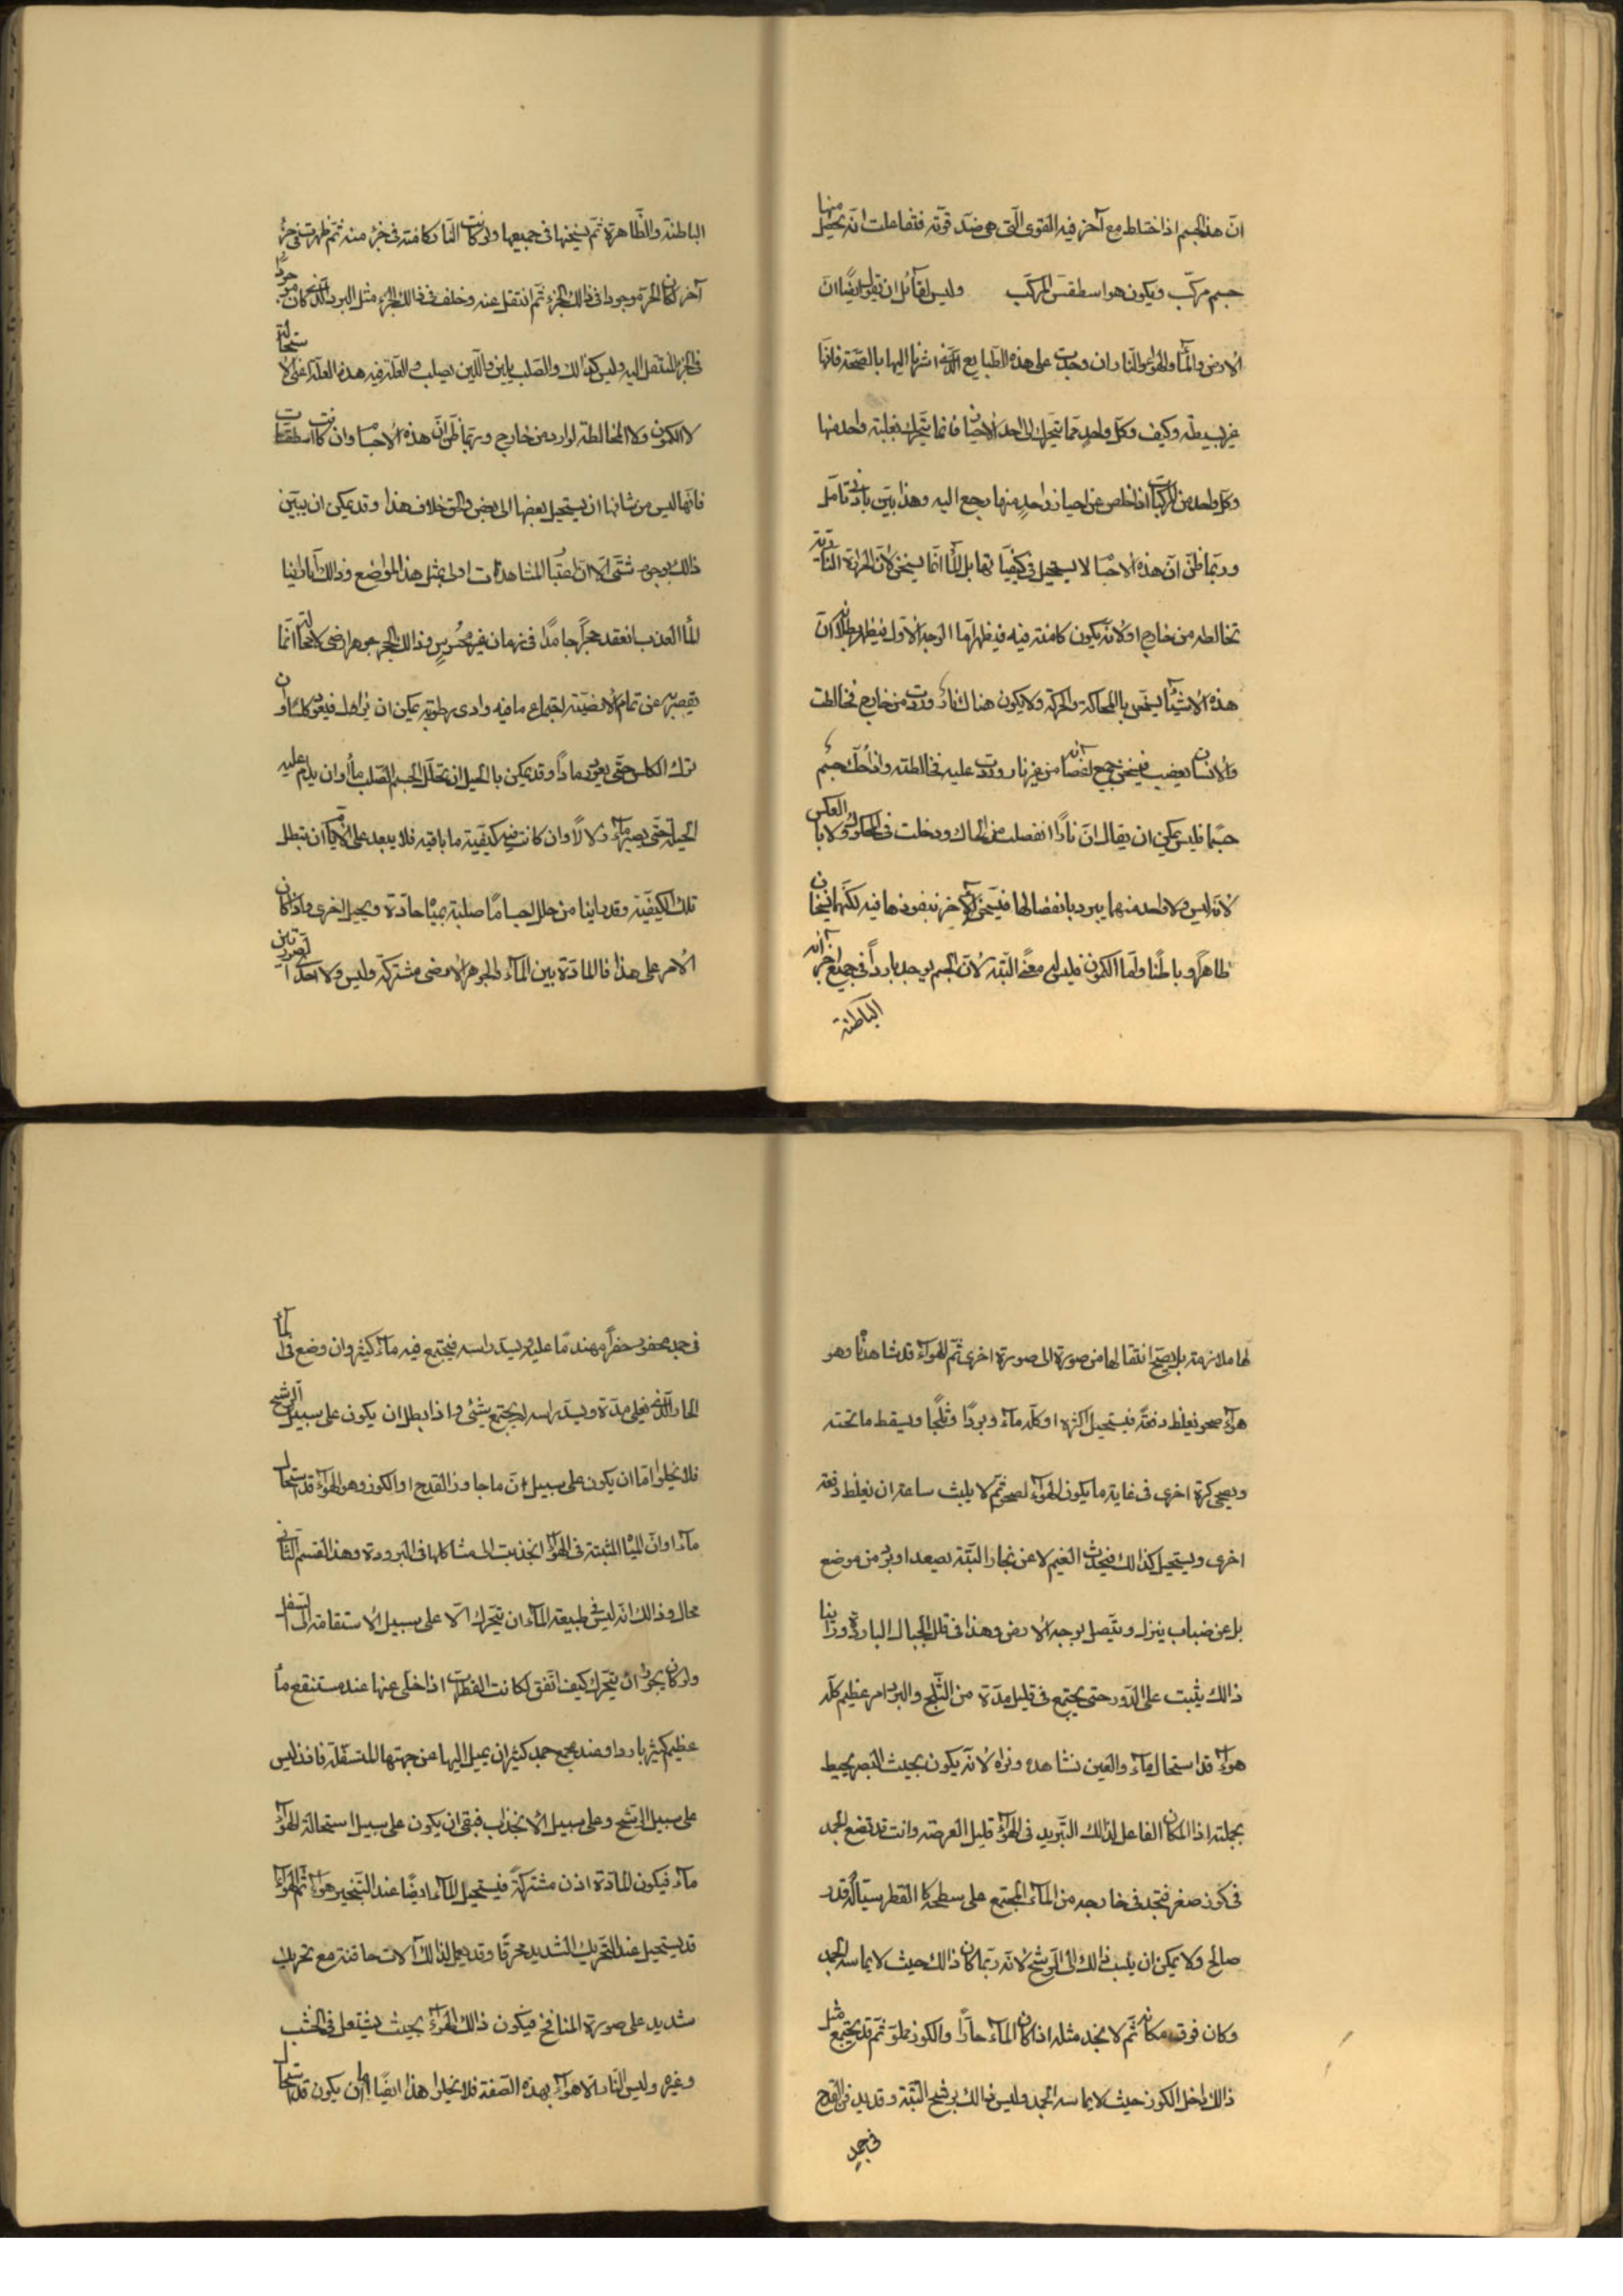 ان هذ الجسم اذا ختلط مع آخر فيه القوى الّتى هى ضدّ قوّته فتفاعلت انّه يحصل منها
جسم مركّب ويكون هو اسطقس المركّب وليس لقائل ان يقول ايضًا انّ
الارض والمآء والهوآء والنار ان وجدت على هذه الطبايع الّتى اشرنا اليها بالصّحة فانّها
غير بسيطة وكيف وكلّ واحدٍ ممّا يتحرّك الى احد الاحيان فانما يتحرّك بغلبة واحد منها
وكلّ واحد من المركّبات اذا خلص عن احياز واحدٍ منها رجع اليه وهذا بيّن بادنى تامّل
وربّما ظنّ انّ هذه الاجسٰا لا يستحيل فى كيفيّاتها بل المآء انّما يسخن لانّ الحرارة النّاريّة
تخالطه من خارج او لانّه يكون كامنة فيه فيظهر امّا الوجه الاوّل فيظهر بطلانه انّ
هذه الاشيآء يسخن بالمحاكة والحركة ولا يكون هناك نار وردت من خارج فخالطت
والانسان يغضب فيسخن جميع اعضآئه من غير نار وردت عليه فخالطته واذا حكّ جسم
جسمًا فليس يمكن ان يقال انّ نارًا انفصلت من الحاك ودخلت فى المحكوك ولا بالعكس
لانّه ليس ولا واحد منهما يبرد بانفصالها فيسخن الآخر بنفوذها فيه لكنّهما يسخنان
ظاهرًا وباطنًا وامّا الكمون فليس له معنًى البتّة لانّ الجسم يوجد باردًا فى جميع اجزآئه
الباطنة
الباطنة والظّاهرة ثمّ يسخنها فى جميعها ولو كانت النّار كامنة فى جزء منه ثمّ ظهرت فى جزء
آخر لكان الحرّ موجودا فى ذالك الجزء ثمّ انتقل عنه وخلف فى ذالك الجزء مثل البرد الّذى كان موجودًا
فى الجزء المنتقل اليه وليس كذالك والصّلب يلين واللّين يصلب والعلّة فيه هذه العلّة اعنى الاستحالة
لا الكمون ولا المخالطة لوارد من خارج وربّما ظنّ انّ هذه الاجسٰا وان كانت اسطقسٰات
فانّها ليس من شانها ان يستحيل بعضها الى بعض والحق خلاف هذا وقد يمكن ان يبيّن
ذالك بوجوه شتّى الا انّ اعتبٰا المشاهدات اولى بمثل هذ المواضع وذالك انا راينا
المآ العذب انعقد حجرًا جامدًا فى زمان غير محسوسٍ وذالك الحجر جوهر ارضى لا محالة انّما
يقصر به عن تمام الارضيّة اجتماع ما فيه وادى رطوبة يمكن ان يزاهل فيعود كلسًا وان
ترك الكلس حتّى يعود رمادًا وقد يمكن بالحيل ان يحلّل الجسم الصّلب مآءً وان يدام عليه
الحيلة حتّى يصير مآءً زلالًا وان كانت فيه كيفيّة ما باقية فلا يبعد على الايّام ان تبطل
تلك الكيفيّة وقد راينا من حلل اجسامًا صلبة بميٰا حادّة وبحيل اخرى واذا كان
الامر على هذا فالمادّة بين المآء والجوهر الارضى مشتركة وليس ولا احدى الصّورتين
لها ملازمة بل يصحّ انتقالها من صورة الى صورة اخرى ثمّ الهوآء قد شاهدناه وهو
هوآء صحو يغلظ دفعةً فيستحيل اكثره او كلّه مآءً وبردًا وثلجًا ويسقط ما تحته
ويصحى كرة اخرى فى غاية ما يكون الهوآء لصحو ثمّ لا يلبث ساعة ان يغلظ دفعة
اخرى ويستحيل كذالك فيحدث الغيم لا عن بخار البتّة يصعد او يرد من موضع
بل عن ضباب ينزل ويتّصل بوجه الارض وهذا فى قلل الجبال الباردة وراينا
ذالك يثبت على الدّور حتّى يجتمع فى قليل مدّة من الثّلج والبرد امر عظيم كلّه
هوآء قد استحال مآء والعين تشاهده وتراه لانّه يكون بحيث البصر يحيط
بجملته اذ المكان الفاعل لذالك التّبريد فى الهوآء قليل العرضة وانت قد تضع الجمد
فى كوز صفر فتجد فى خارجه من المآء المجتمع على سطحه كا القطر سيّالة قدر
صالح ولا يمكن ان ينسب ذالك الى الرّشح لانّه ربّما كان ذالك حيث لا يماسه الجمد
وكان فوق مكانه ثمّ لا تجد مثله اذا كان المآء حارًّا والكوز مملوّ ثمّ قد يجتمع مثل
ذالك داخل الكوز حيث لا يماسه الجمد وليس ذالك برشح البتّة وقد يدفن القدح
فى جمدٍ
فى جمد محفور حفرًا مهندمًا عليه ويسدّ راسه فيجتمع فيه مآء كثير وان وضع فى المآء
الحار الّذى يغلى مدّة ويسدّ راسه لم يجتمع شئى واذا بطل ان يكون على سبيل الرشح
فلا يخلوا امّا ان يكون على سبيل انّ ما جاور القدح او الكوز وهو الهوآء قد استحال
مآءً او انّ الميٰا المنبثة فى الهوآء انجذبت الى مشاكلها فى البرودة وهذ القسم الثّانى
محال وذالك انّه ليس فى طبيعة المآء ان يتحرّك الّا على سبيل الاستقامة الى السفل
ولو كان يجوز ان يتحرّك كيف اتّفق لكانت القطرات اذا خلّى عنها عند مستنقع مآء
عظيم كثير باردا وعند مجمع جمد كثير ان يميل اليها عن جهتها المتسفّلة فاذن ليس
على سبيل الرّشح وعلى سبيل الانجذاب فبقى ان يكون على سبيل استحالة الهوآء
مآءً فيكون المادّة اذن مشتركةً فيستحيل المآء ايضًا عند التّبخير هوآءً ثمّ الهوآء
قد يستحيل عند التّحريك الشّديد محرقًا وقد يعمل لذالك آلات حاقنة مع تحريك
شديد على صورة المنافخ فيكون ذالك الهوآء بحيث يشتعل فى الخشب
وغيره وليس النّار الا هوآء بهذه الصّفة فلا يخلوا هذا ايضًا امّا ان يكون قد استحال